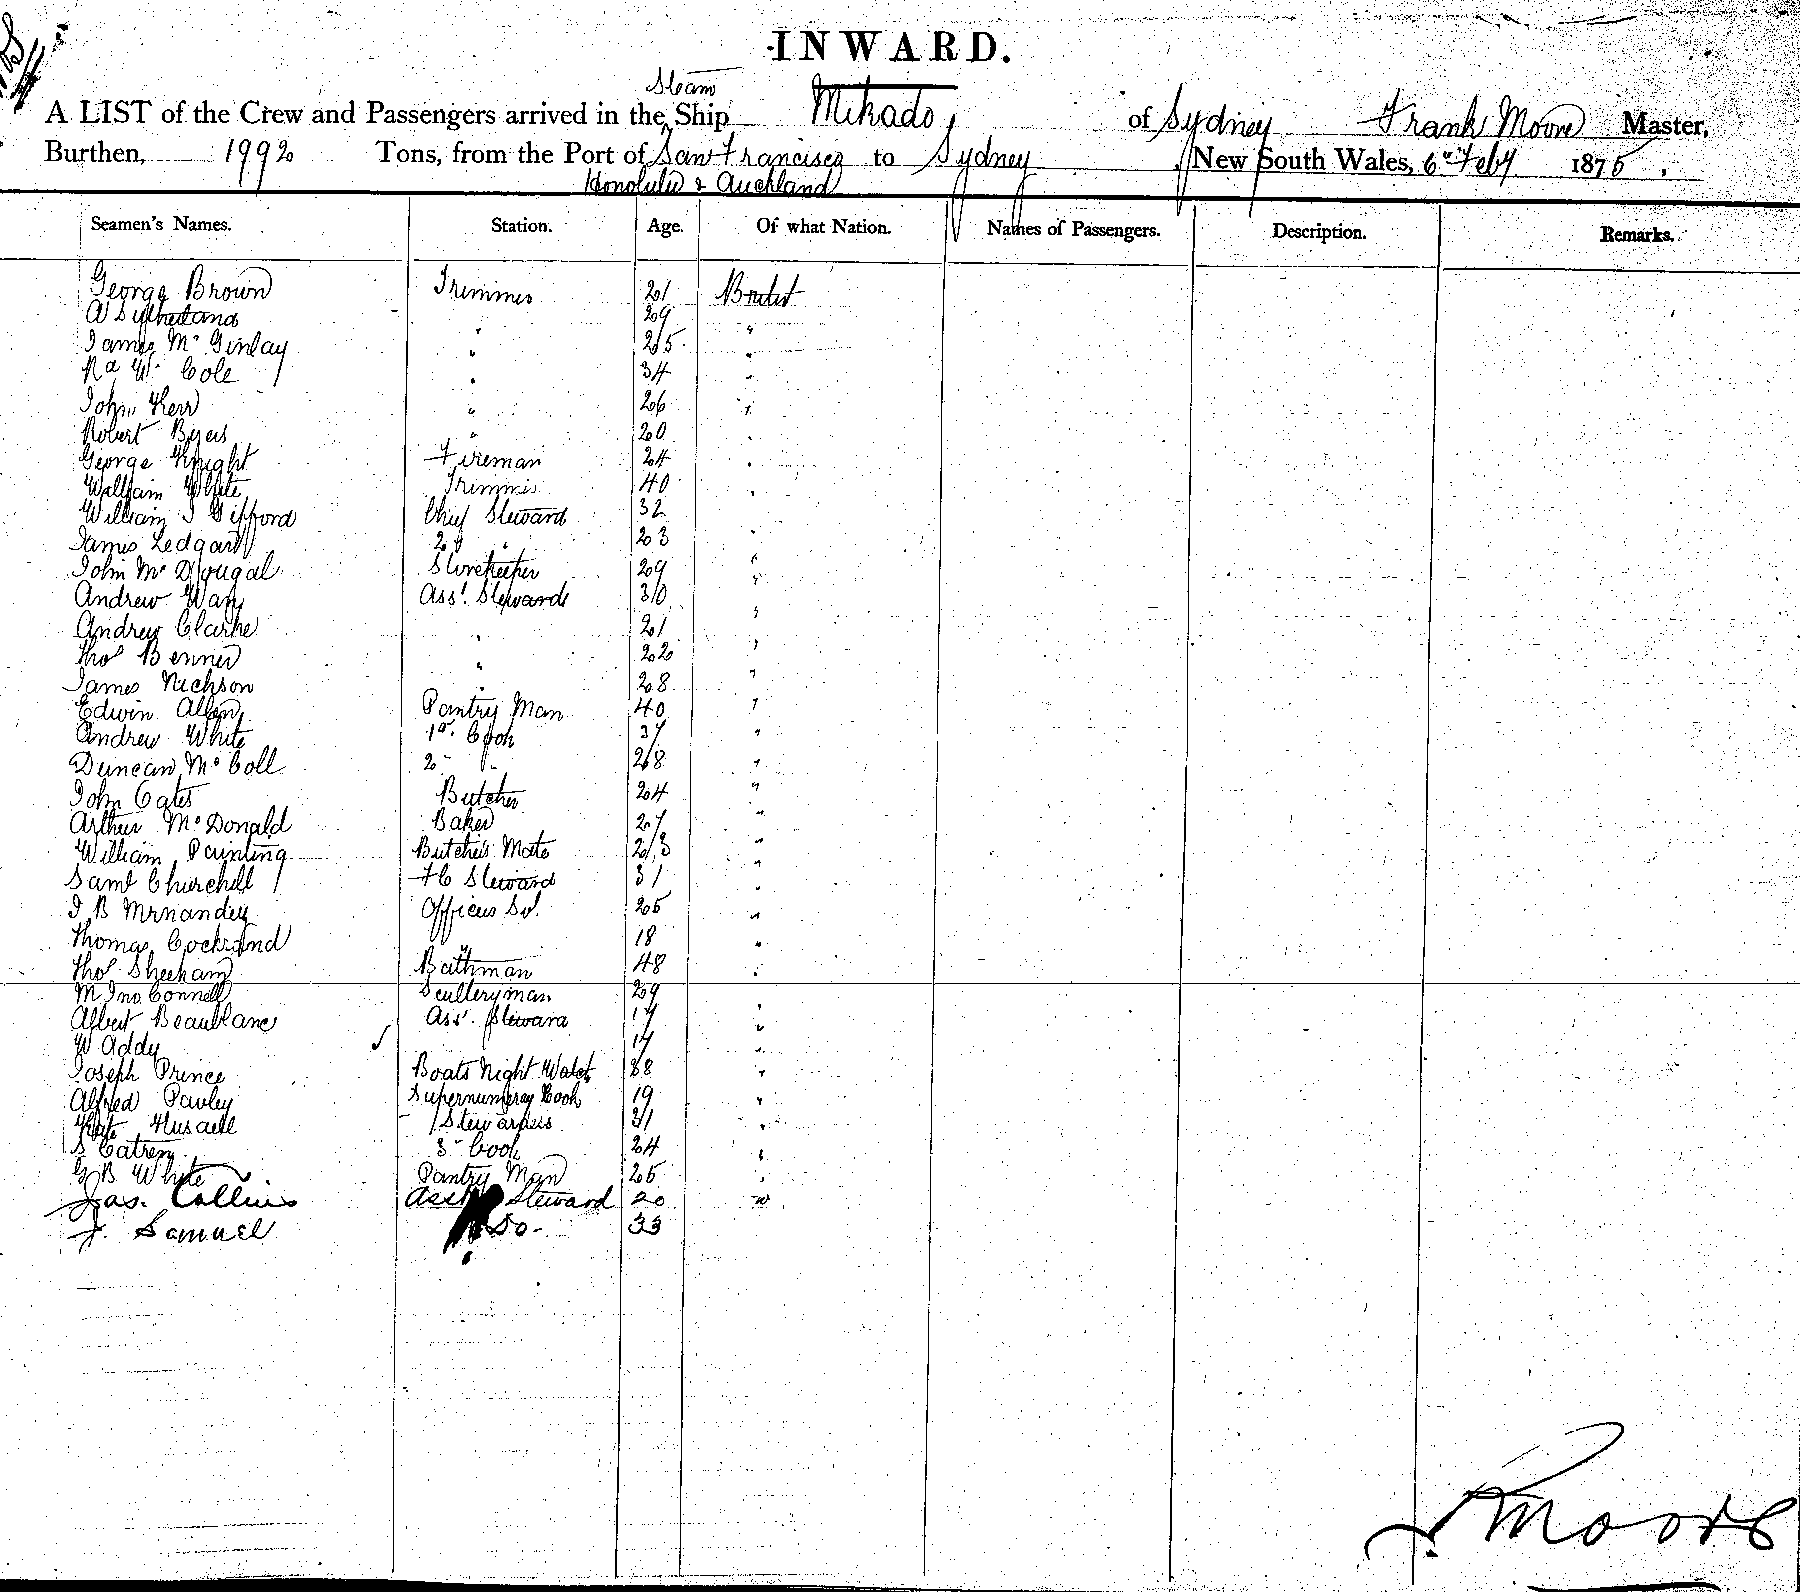 INWARD.
Steam
A LIST of the Crew and Passengers arrived in the Ship Mikado, of Sydney Frank Moore Master,
Burthen, 1992 Tons, from the Port of San Francisco to Sydney New South Wales, 6th Feby 1875.
Honolulu & Auckland
Seamen's Names. Station. Age. Of what Nation. Names of Passengers. Description. Remarks.
George Brown Trimmer 21 British
A Sutherland " 29 "
James Mc Ginlay " 25 "
Rd W. Cole " 34 "
John Kerr " 26 "
Robert Byers " 20 "
George Knight Fireman 24 "
William White Trimmer 40 "
William J Gifford Chief Steward 32
James Ledgard 2d " 23 "
John Mc Dougal Storekeeper 29 "
Andrew Way Asst. Steward 30 "
Andrew Clarke " 21 "
Thos Benner " 22 "
James Nickson " 28 "
Edwin Allen Pantry Man 40 "
Andrew White 1st. Cook 37 "
Duncan Mc Coll 2 " 28 "
John Cates Butcher 24 "
Arthur Mc Donald Baker 27 "
William Painting Butcher's Mate 23 "
Saml Churchill FC Steward 31 "
J B Officers St. 25 "
Thomas " 18 "
Thos Sheeham Bathman 48 "
M Jno Connell Sculleryman 29 "
Albert Beaublanc Asst. Steward 17 "
W Addy 17 "
Joseph Prince Boats Night Watch 38 "
Alfred Pawley Supernumeray Cook 19 "
Kate Stewardess 31 "
S 3 Cook 24 "
G B White Pantry Man 25 "
Jas. Collins Asst Steward 20 "
J. Samuel Do- 33
F Moore